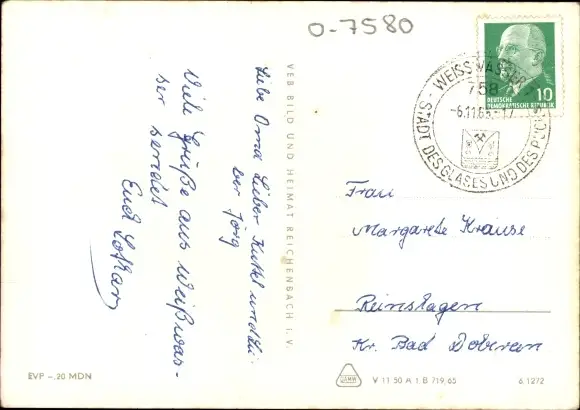 0-7580
Liebe Oma Lieber Kuttel und Lie-
ber Jörg
Viele Grüße aus Weißwas-
ser sendet
Euch Lothar
VEB BILD UND HEIMAT REICHENBACH I. V.
WEISSWASSER
758
-6.11.65.-17
STADT DES GLASES UND DES
10
DEUTSCHE
DEMOKRATISCHE REPUBLIK
Frau
Margarete Krause
Reinshagen
Kr. Bad Doberan
EVP -.20 MDN
V 11 50 A 1 B 719/65
6.1272